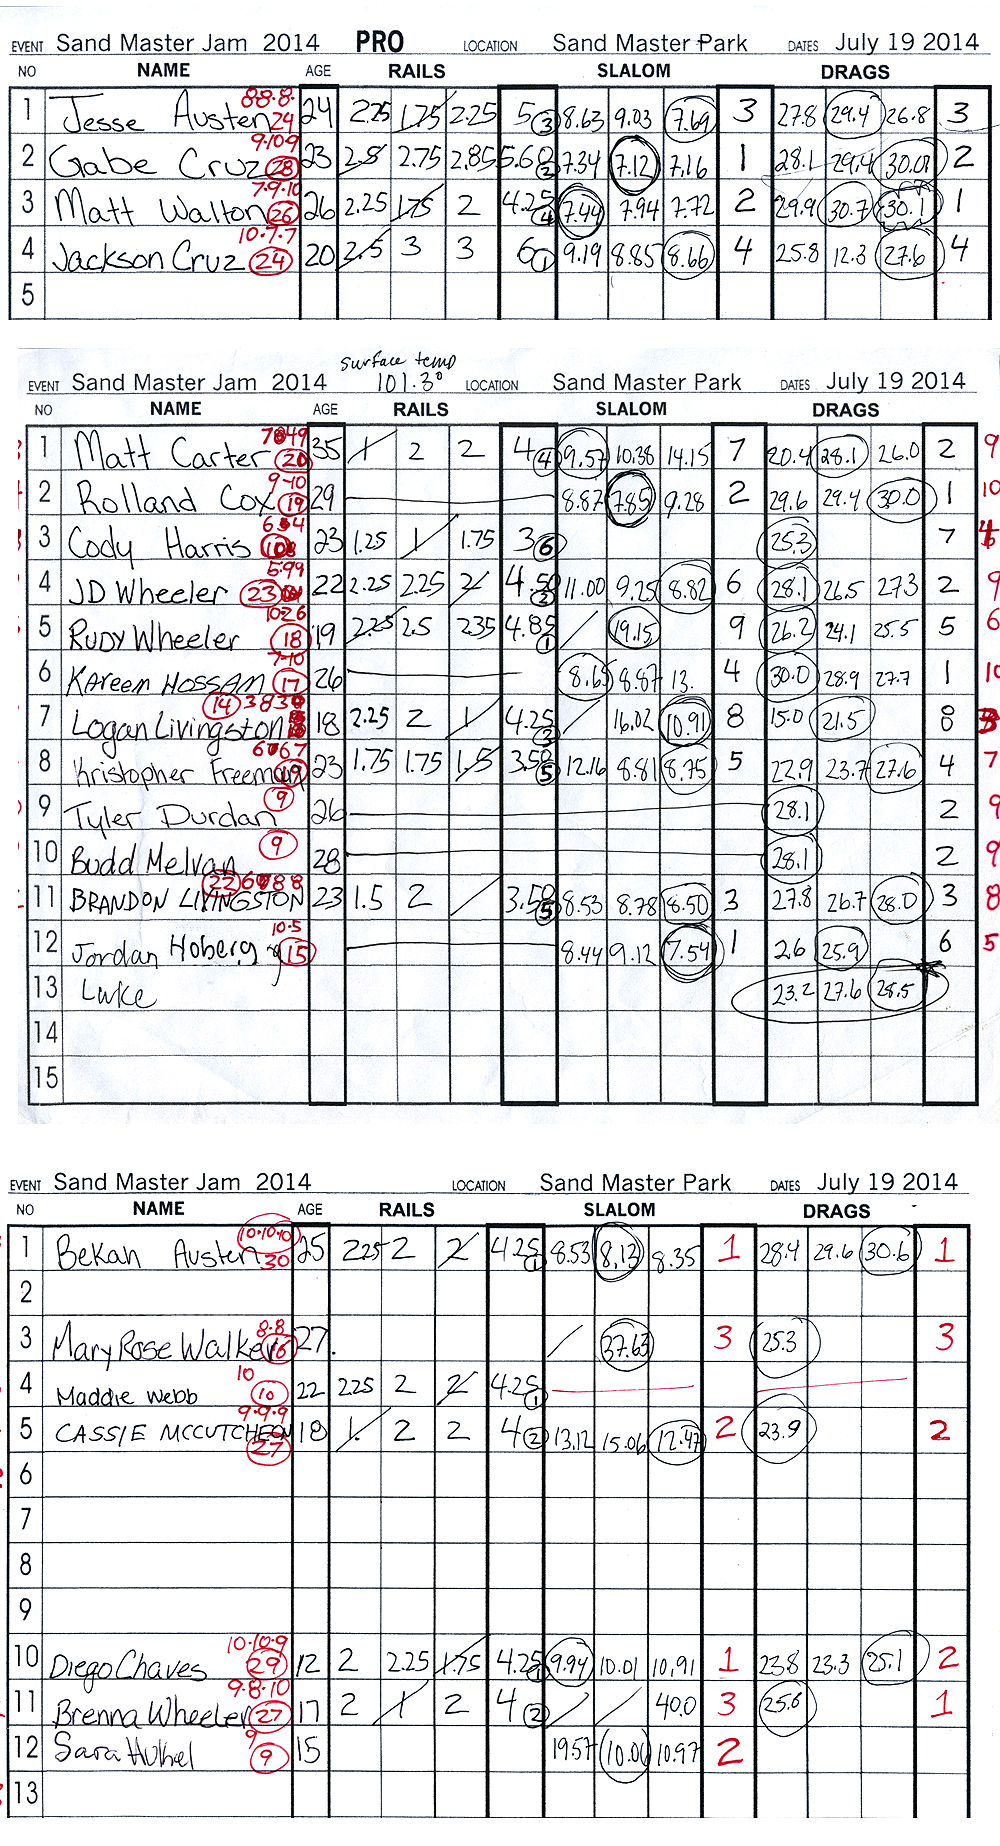 EVENT Sand Master Jam 2014 PRO LOCATION Sand Master Park DATES July 19 2014
NO NAME AGE RAILS SLALOM DRAGS
8·8·8·
1 Jesse Austen 24 24 2.25 1.75 2.25 5 3 8.63 9.03 7.69 3 27.8 29.4 26.8 3
9·10·9
2 Gabe Cruz 28 23 2.5 2.75 2.85 5.60 2 7.34 7.12 7.16 1 28.1 29.4 30.01 2
7·9·10
3 Matt Walton 26 26 2.25 1.75 2 4.25 4 7.44 7.94 7.72 2 29.9 30.7 30.1 1
10·7·7
4 Jackson Cruz 24 20 2.5 3 3 6 1 9.19 8.85 8.66 4 25.8 12.3 27.6 4
5
surface temp
101.3°
EVENT Sand Master Jam 2014 LOCATION Sand Master Park DATES July 19 2014
NO NAME AGE RAILS SLALOM DRAGS
1 Matt Carter 20 35 1 2 2 4 4 9.57 10.38 14.15 7 20.4 28.1 26.0 2 9
9-10
2 Rolland Cox 19 29 8.87 7.85 9.28 2 29.6 29.4 30.0 1 10
3 Cody Harris 23 1.25 1 1.75 3 6 25.3 7
5·99
4 JD Wheeler 23 22 2.25 2.25 2 4.50 2 11.00 9.25 8.82 6 28.1 26.5 27.3 2 9
10·2·6
5 RUDY WHEELER 18 19 2.25 2.5 2.35 4.85 1 19.15 9 26.2 24.1 25.5 5 6
7-10
6 KAREEM HOSSAM 17 26 8.65 8.87 13. 4 30.0 28.9 27.7 1 10
14 3 8 3
7 Logan Livingston 18 2.25 2 1 4.25 3 16.02 10.91 8 15.0 21.5 8 3
8 Kristopher Freeman 19 23 1.75 1.75 1.5 3.50 5 12.16 8.81 8.75 5 22.9 23.7 27.6 4 7
9 Tyler Durdan 9 26 28.1 2 9
10 Budd Melvan 9 28 28.1 2 9
22
11 BRANDON LIVINGSTON 23 1.5 2 3.50 5 8.53 8.78 8.50 3 27.8 26.7 28.0 3 8
10·5
12 Jordan Hoberg 15 8.44 9.12 7.54 1 26 25.9 6 5
13 Luke 23.2 27.6 28.5
14
15
EVENT Sand Master Jam 2014 LOCATION Sand Master Park DATES July 19 2014
NO NAME AGE RAILS SLALOM DRAGS
10·10·10
1 Bekah Austen 30 25 2.25 2 2 4.25 1 8.53 8.13 8.35 1 28.4 29.6 30.6 1
2
8·8
3 Mary Rose Walker 16 27. 37.63 3 25.3 3
10
4 Maddie Webb 10 22 2.25 2 2 4.25 1
9·9·9
5 CASSIE MCCUTCHEON 27 18 1. 2 2 4 2 13.12 15.06 12.47 2 23.9 2
6
7
8
9
10·10·9
10 Diego Chaves 29 12 2 2.25 1.75 4.25 1 9.94 10.01 10.91 1 23.8 23.3 25.1 2
9·8·10
11 Brenna Wheeler 27 17 2 1 2 4 2 40.0 3 25.6 1
9
12 Sara 9 15 19.57 10.06 10.97 2
13